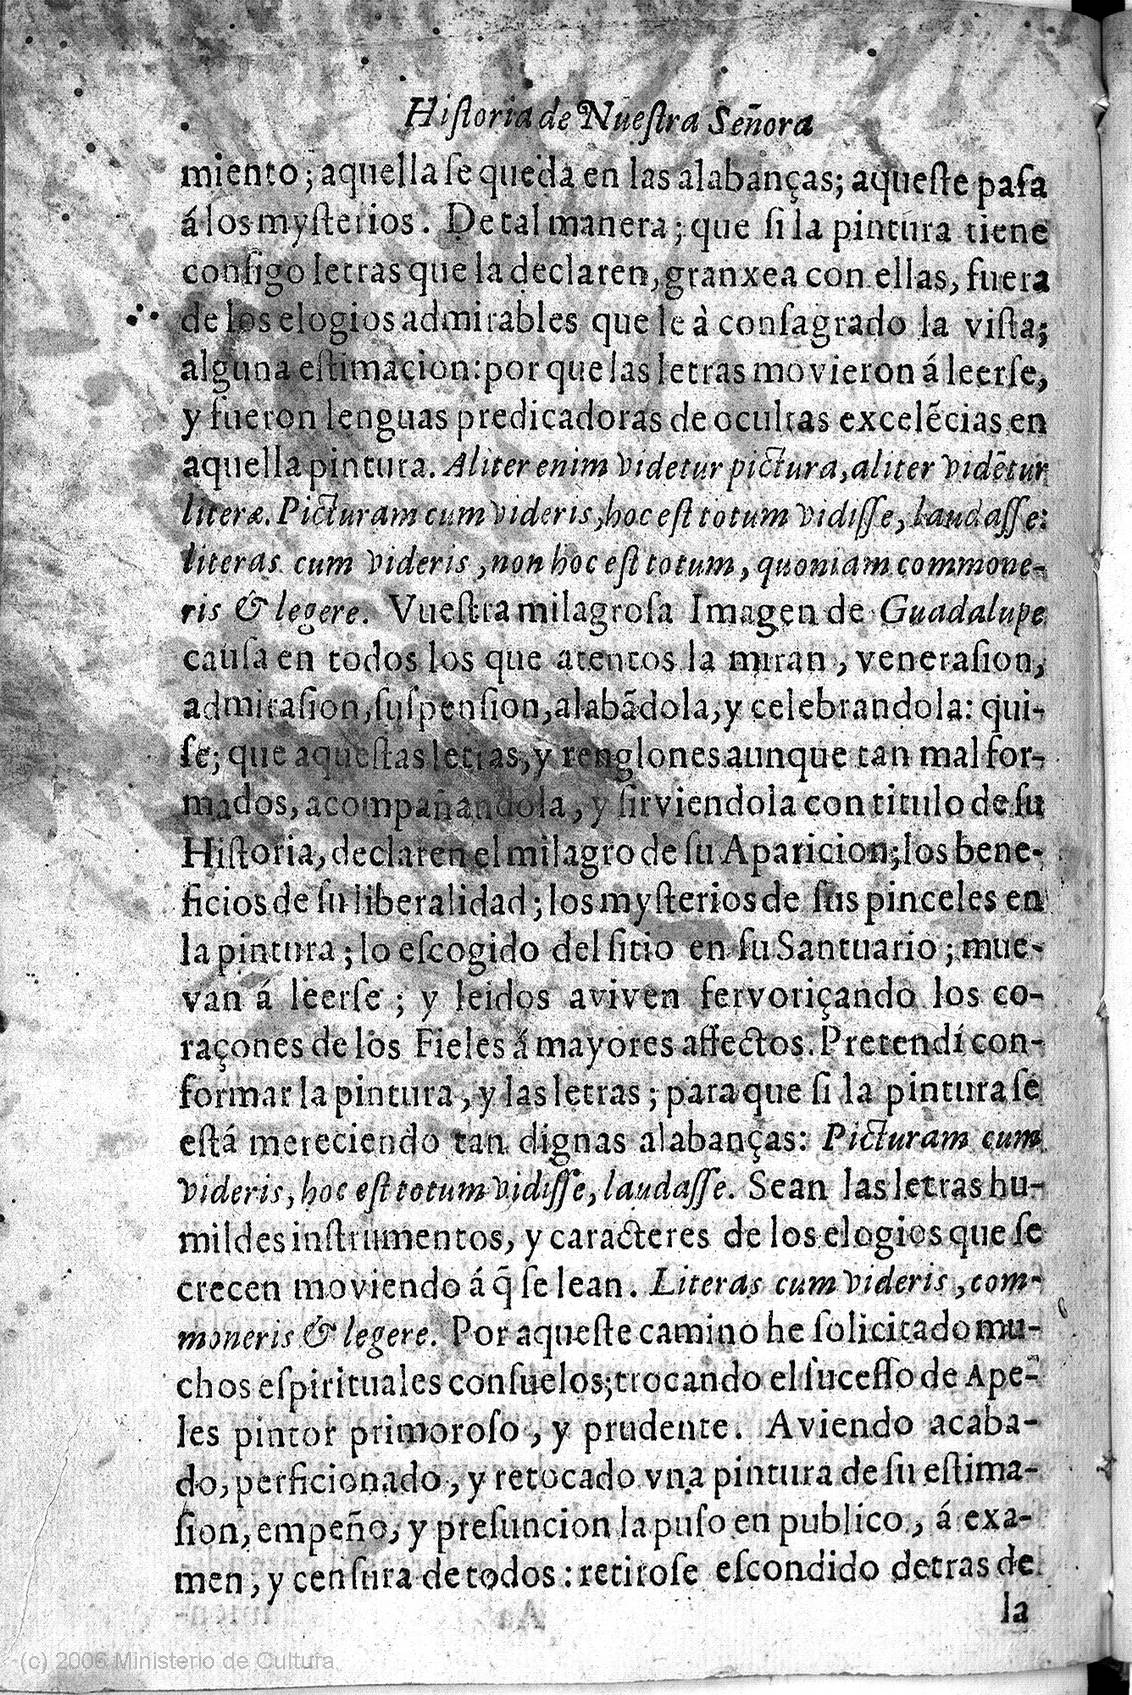 Hiſtoria de Nueſtra Señora
miento; aquella ſe queda en las alabanças; aqueſte paſa
á los myſterios. De tal manera; que ſi la pintura tiene
conſigo letras que la declaren, granxea con ellas, fuera
de los elogios admirables que le à conſagrado la viſta;
alguna eſtimacion: por que las letras movieron á leerſe,
y fueron lenguas predicadoras de ocultas excelẽcias en
aquella pintura. Aliter enim videtur pictura, aliter vidẽtur
literæ. Picturam cum videris, hoc eſt totum vidiſſe, laudaſſe:
literas cum videris, non hoc eſt totum, quoniam commone-
ris & legere. Vueſtra milagroſa Imagen de Guadalupe
cauſa en todos los que atentos la miran, veneraſion,
admiraſion, ſuſpenſion, alabãdola, y celebrandola: qui-
ſe; que aqueſtas letras, y renglones aunque tan mal for-
mados, acompañandola, y ſirviendola con titulo de ſu
Hiſtoria, declaren el milagro de ſu Aparicion; los bene-
ficios de ſu liberalidad; los myſterios de ſus pinceles en
la pintura; lo eſcogido del ſitio en ſu Santuario; mue-
van á leerſe; y leidos aviven fervoriçando los co-
raçones de los Fieles á mayores affectos. Pretendí con-
formar la pintura, y las letras; para que ſi la pintura ſe
eſtá mereciendo tan dignas alabanças: Picturam cum
videris, hoc eſt totum vidiſſe, laudaſſe. Sean las letras hu-
mildes inſtrumentos, y caracteres de los elogios que ſe
crecen moviendo á q̃ ſe lean. Literas cum videris, com-
moneris & legere. Por aqueſte camino he ſolicitado mu-
chos eſpirituales conſuelos; trocando el ſuceſſo de Ape-
les pintor primoroſo, y prudente. Aviendo acaba-
do, perficionado, y retocado vna pintura de ſu eſtima-
ſion, empeño, y preſuncion la puſo en publico, á exa-
men, y cenſura de todos: retiroſe eſcondido detras de
la
(c) 2006 Ministerio de Cultura